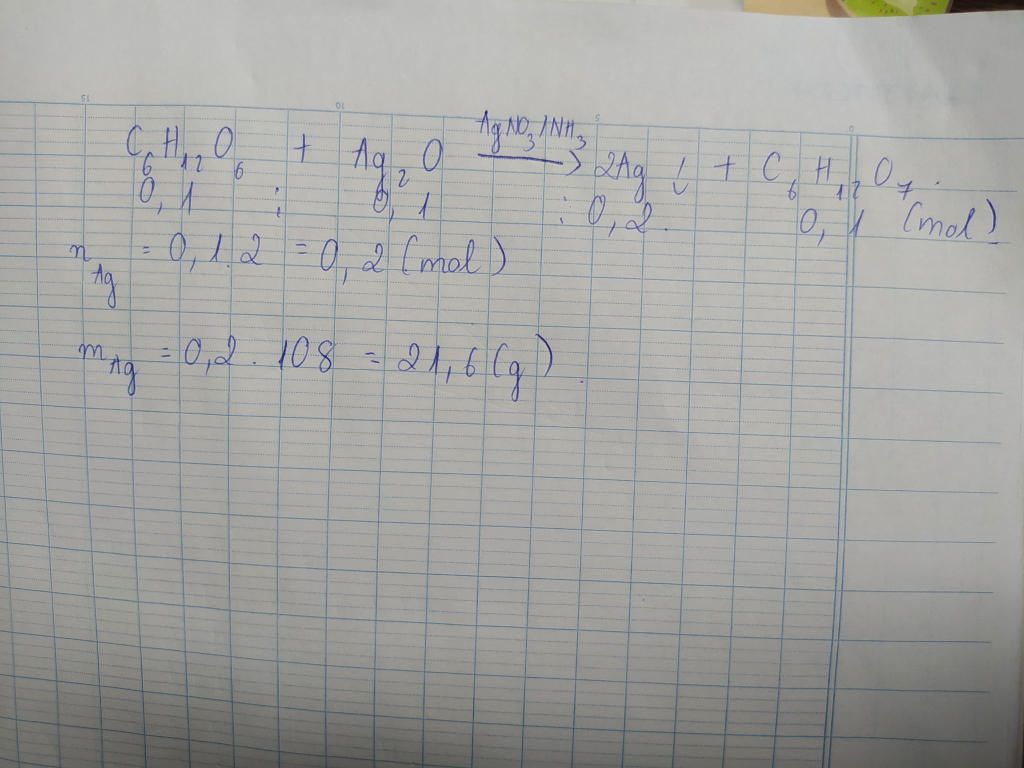 C₆H₁₂O₆ + Ag₂O —AgNO₃/NH₃→ 2Ag↓ + C₆H₁₂O₇.
0,1 : 0,1 : 0,2. 0,1 (mol)
n_Ag = 0,1.2 = 0,2 (mol)
m_Ag = 0,2 . 108 = 21,6 (g).